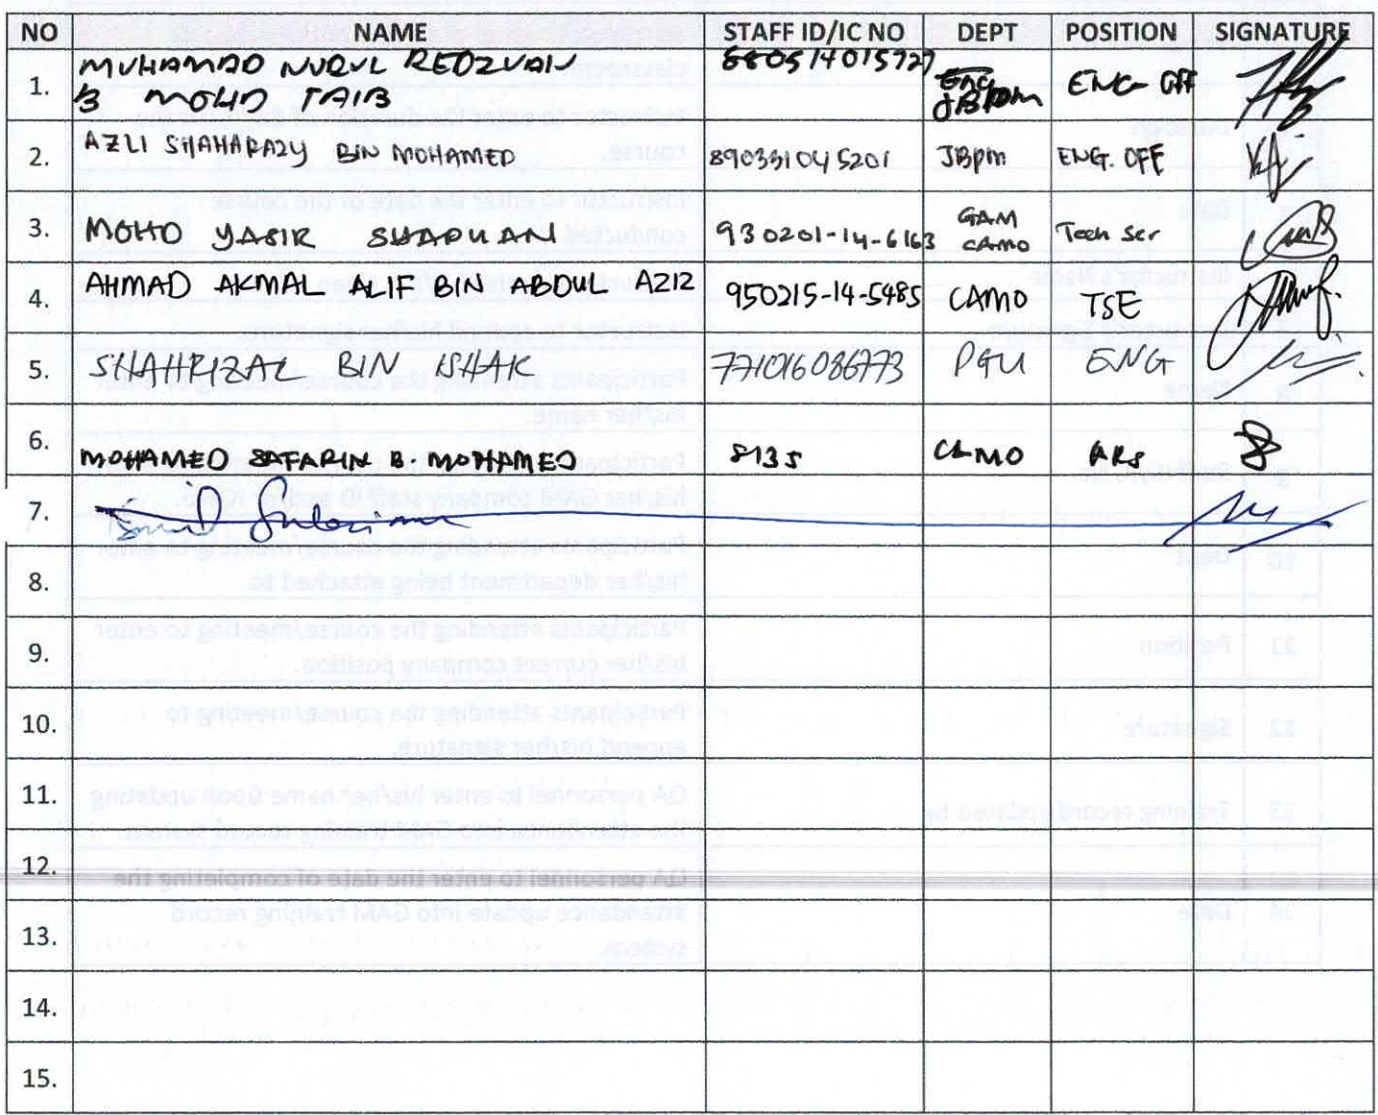 NO NAME STAFF ID/IC NO DEPT POSITION SIGNATURE
1. MUHAMAD NURUL REDZUAN
B MOHD TAIB 880514015727 JBPM ENG OFF
2. AZLI SHAHARAZY BIN MOHAMED 890331045201 JBPM ENG. OFF
3. MOHD YASIR SHAPUAN 930201-14-6163 GAM
CAMO Tech Scr
4. AHMAD AKMAL ALIF BIN ABDUL AZIZ 950215-14-5485 CAMO TSE
5. SHAHRIZAL BIN ISHAK 771016086773 PGU ENG
6. MOHAMED SAFARIN B. MOHAMED 8135 CAMO ARS
7.
8.
9.
10.
11.
12.
13.
14.
15.